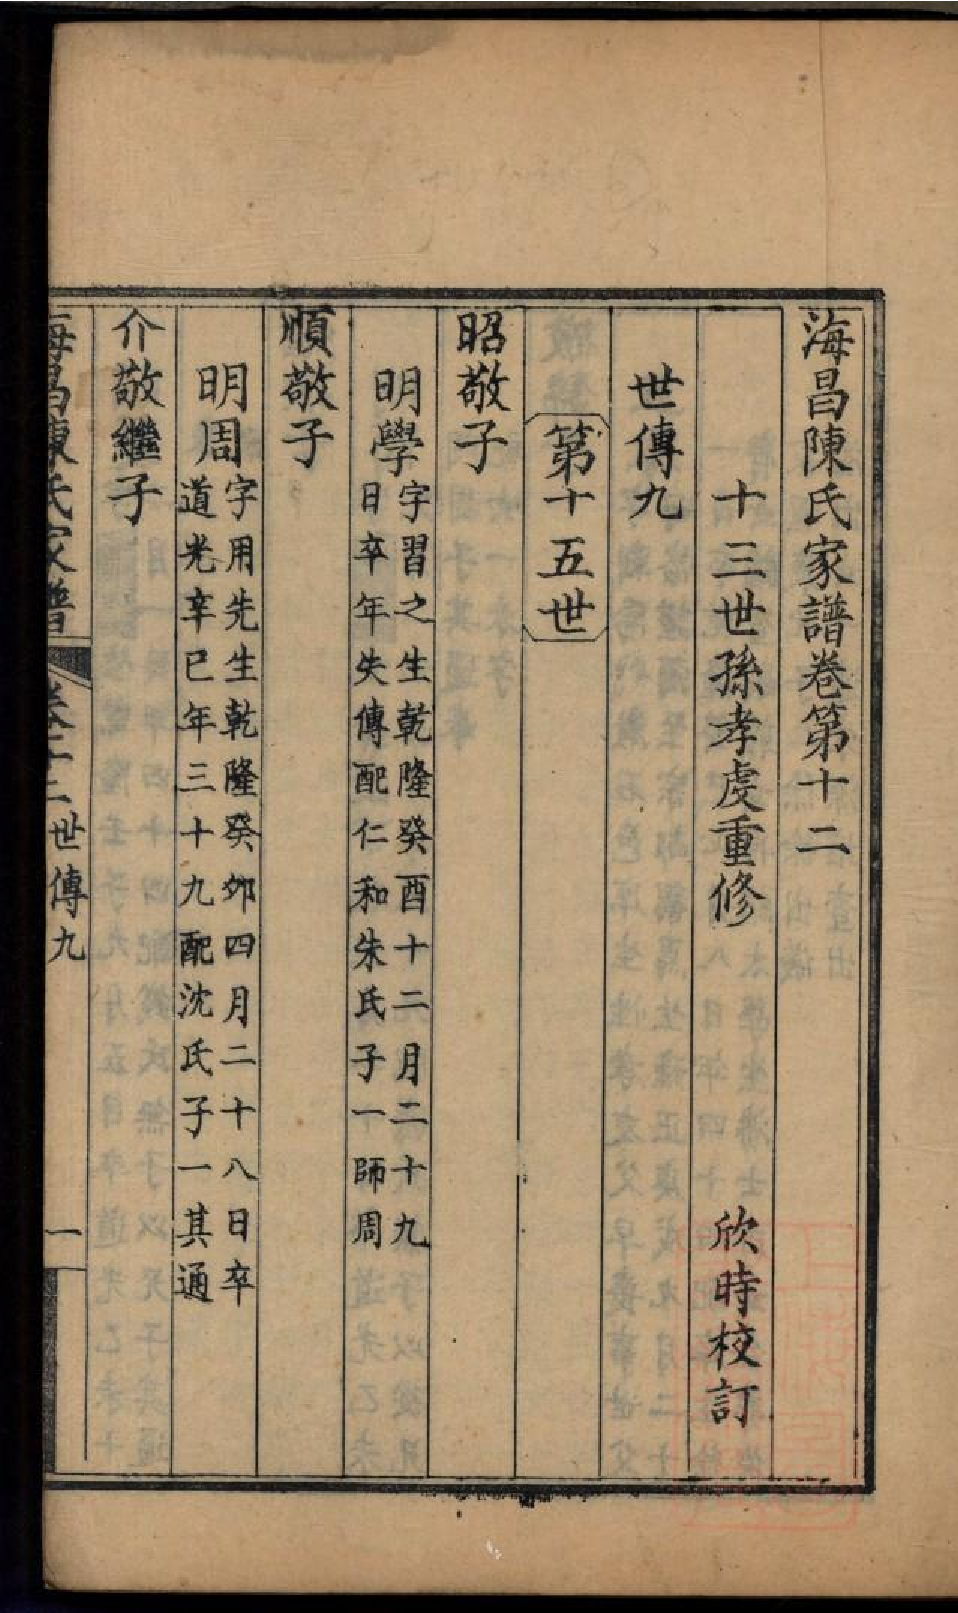 海昌陳氏家譜卷第十二
十三世孫孝虔重修　欣時校訂
世傳九
第十五世
昭敬子
明學
字習之生乾隆癸酉十二月二十九
日卒年失傳配仁和朱氏子一師周
順敬子
明周
字用先生乾隆癸夘四月二十八日卒
道光辛巳年三十九配沈氏子一其通
介敬繼子
海昌陳氏家譜　卷十二　世傳九　一